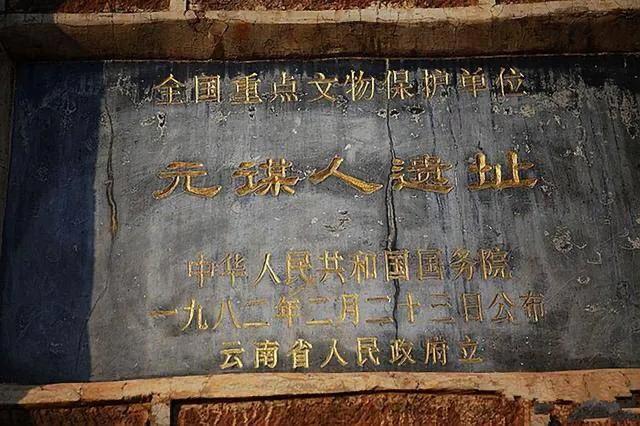 全国重点文物保护单位
元谋人遗址
中华人民共和国国务院
一九八二年二月二十三日公布
云南省人民政府立